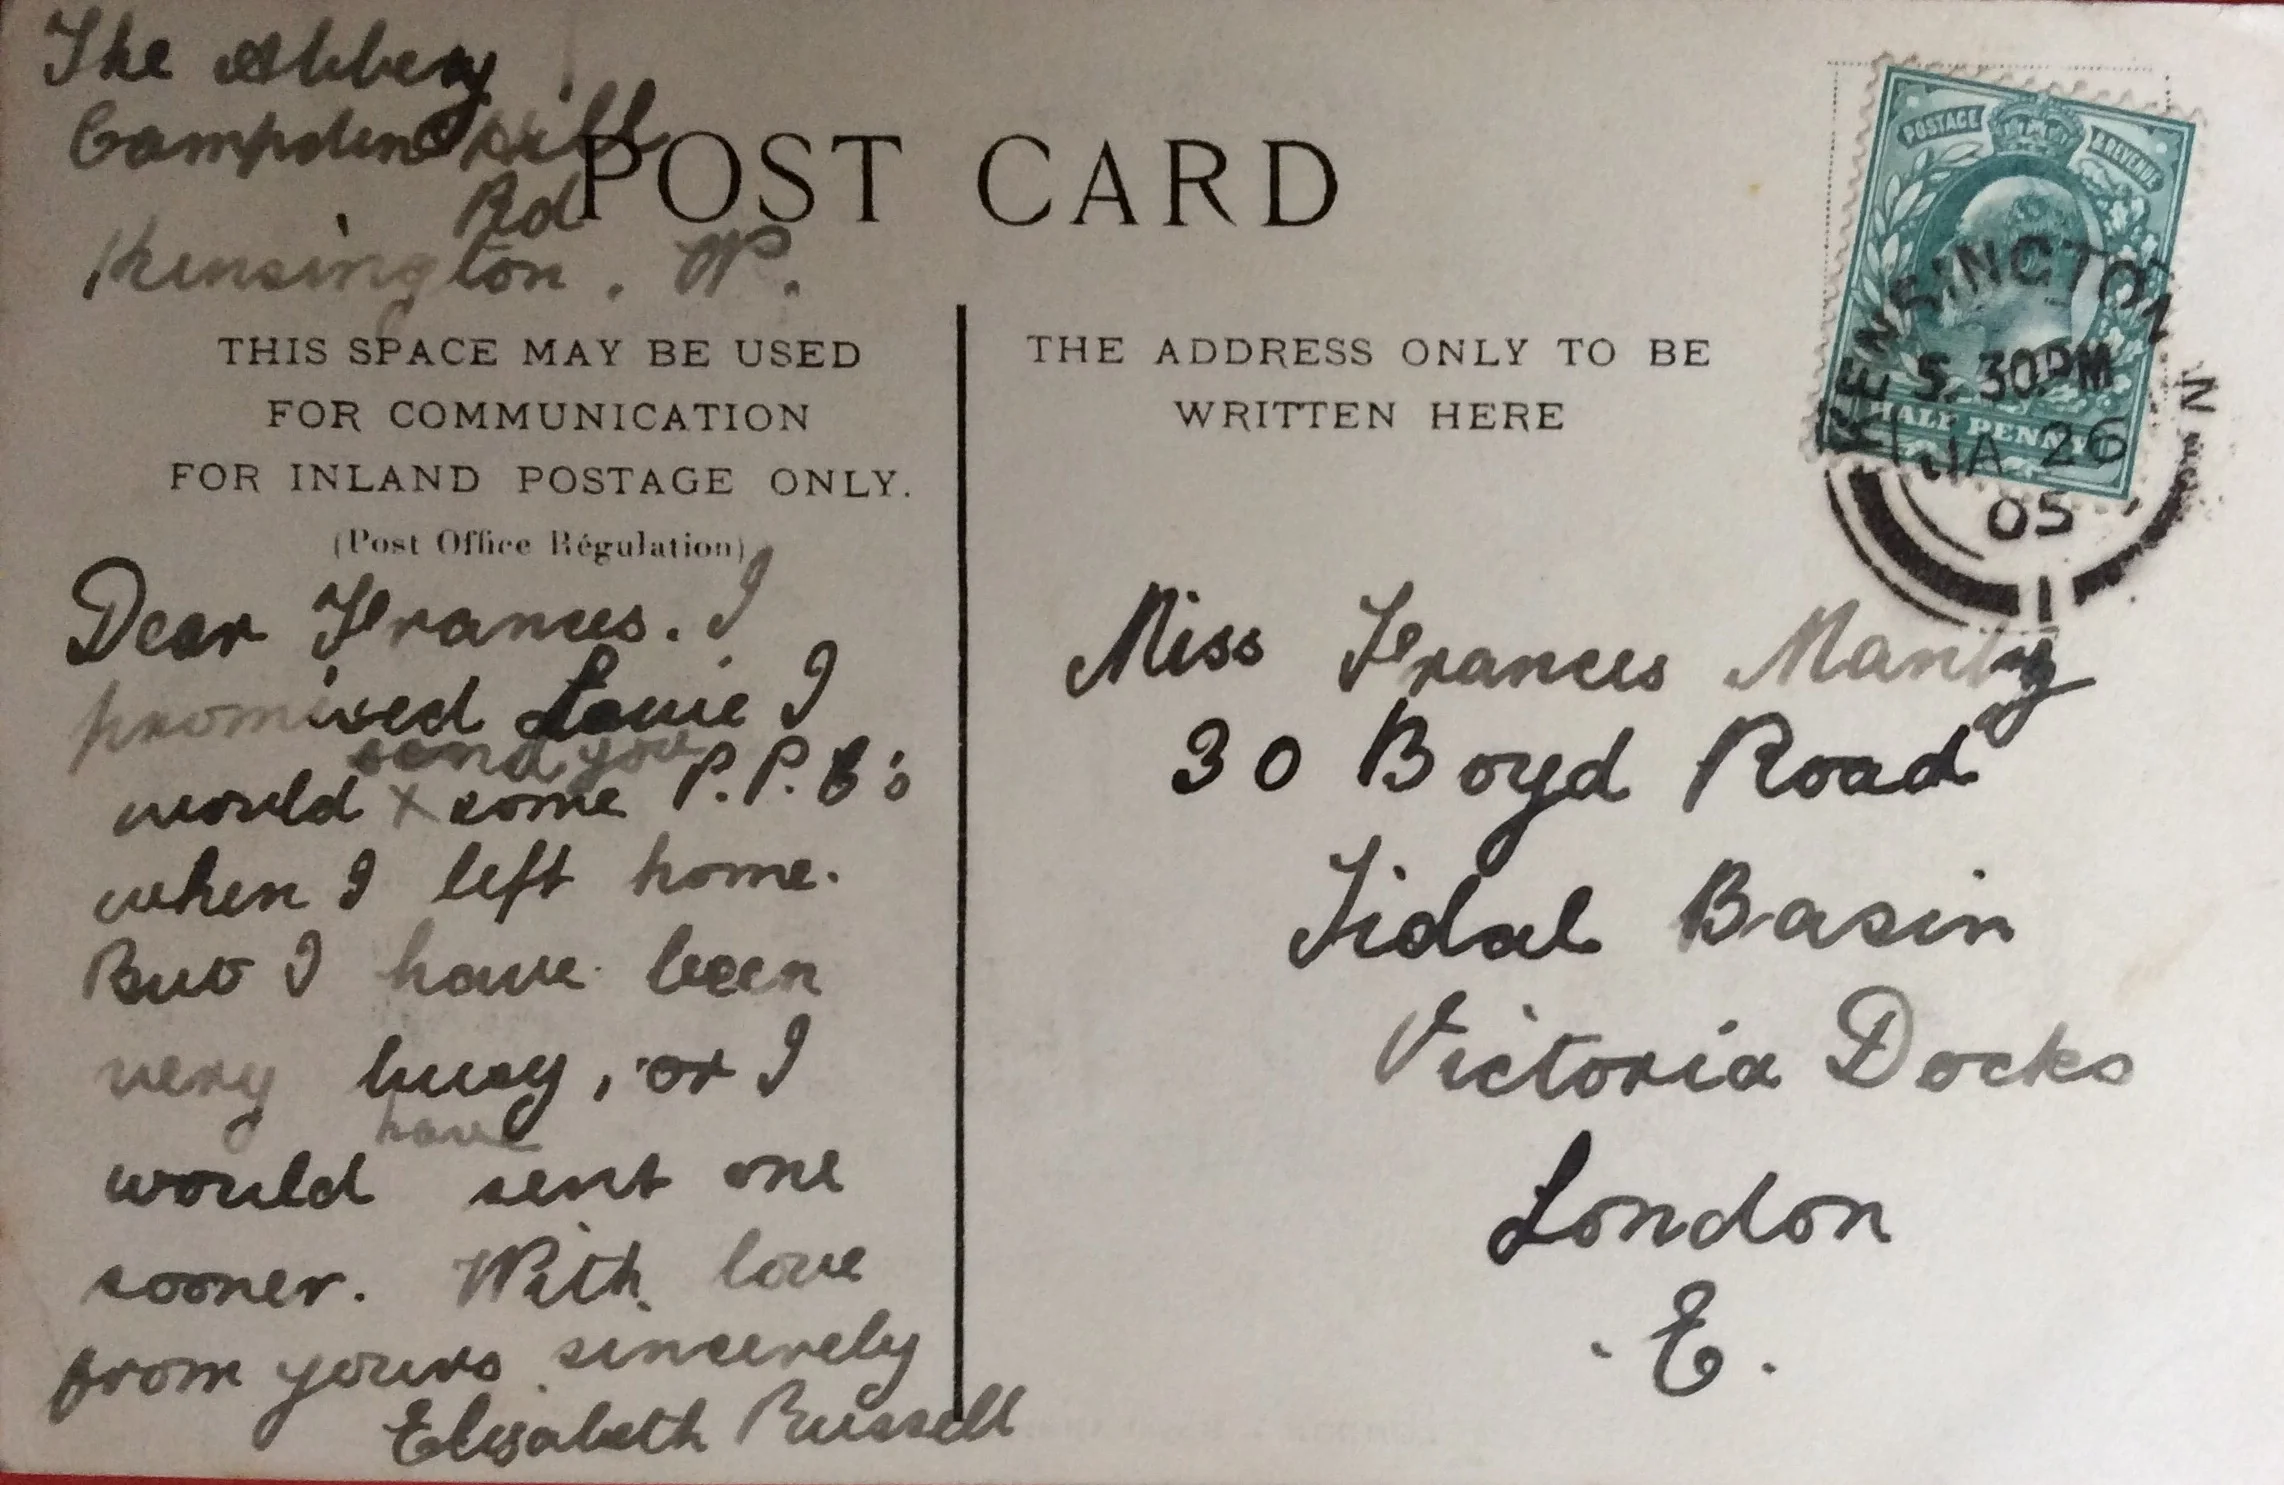 The Abbey
Campden Hill
Rd
Kensington. W.
POST CARD
THIS SPACE MAY BE USED
FOR COMMUNICATION
FOR INLAND POSTAGE ONLY.
(Post Office Régulation)
Dear Frances. I
promised Louie I
send you
would x some P.P.C's
when I left home.
But I have been
very busy, or I
have
would sent one
sooner. With love
from yours sincerely
Elisabeth Russell
THE ADDRESS ONLY TO BE
WRITTEN HERE
POSTAGE & REVENUE
HALF PENNY
KENSINGTON
5.30PM
JA 26
05
N
1
Miss Frances Manly
30 Boyd Road
Tidal Basin
Victoria Docks
London
.E.